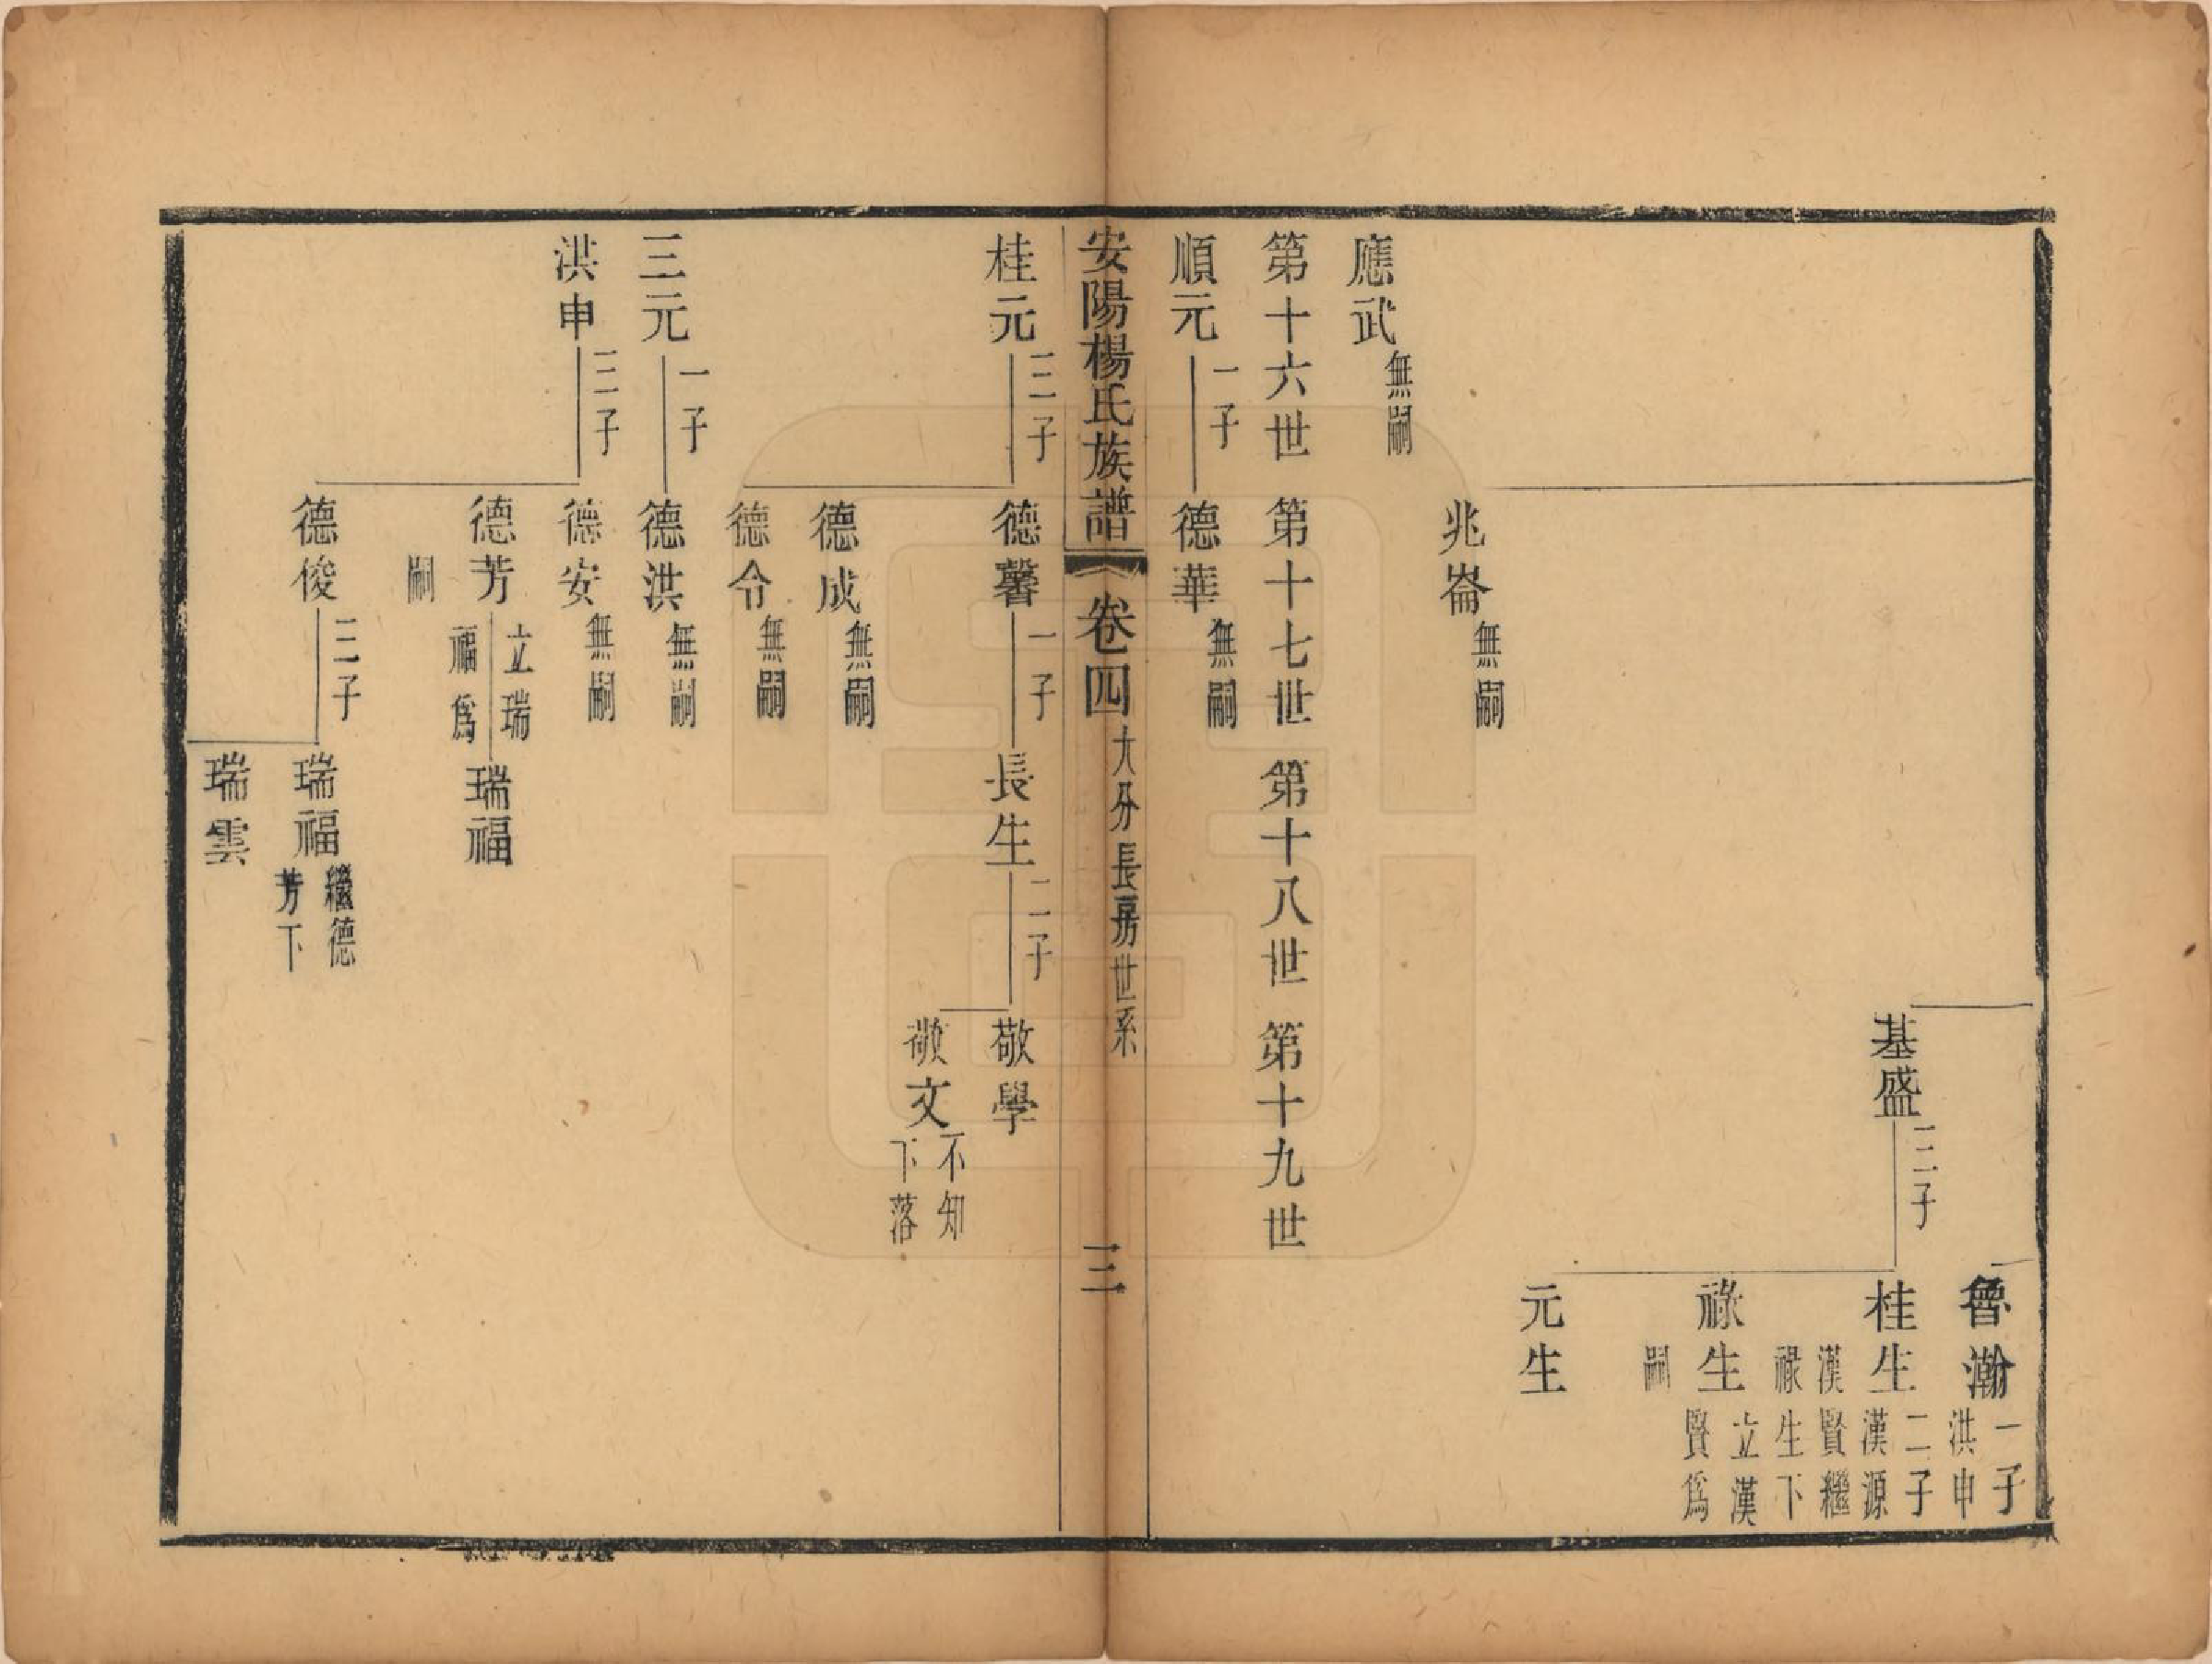 魯瀚 一子洪申
基盛 三子
桂生 二子漢源漢賢繼祿生下
祿生 立漢賢爲嗣
元生
兆崙 無嗣
應武 無嗣
第十六世 第十七世 第十八世 第十九世
順元 一子 德華 無嗣
安陽楊氏族譜 卷四 大分長房世系 三
桂元 三子 德馨 一子 長生 二子 敬學
敬文 不知下落
德成 無嗣
德令 無嗣
三元 一子 德洪 無嗣
洪申 三子 德安 無嗣
德芳 立瑞福爲嗣 瑞福
德俊 三子 瑞福 繼德芳下
瑞雲